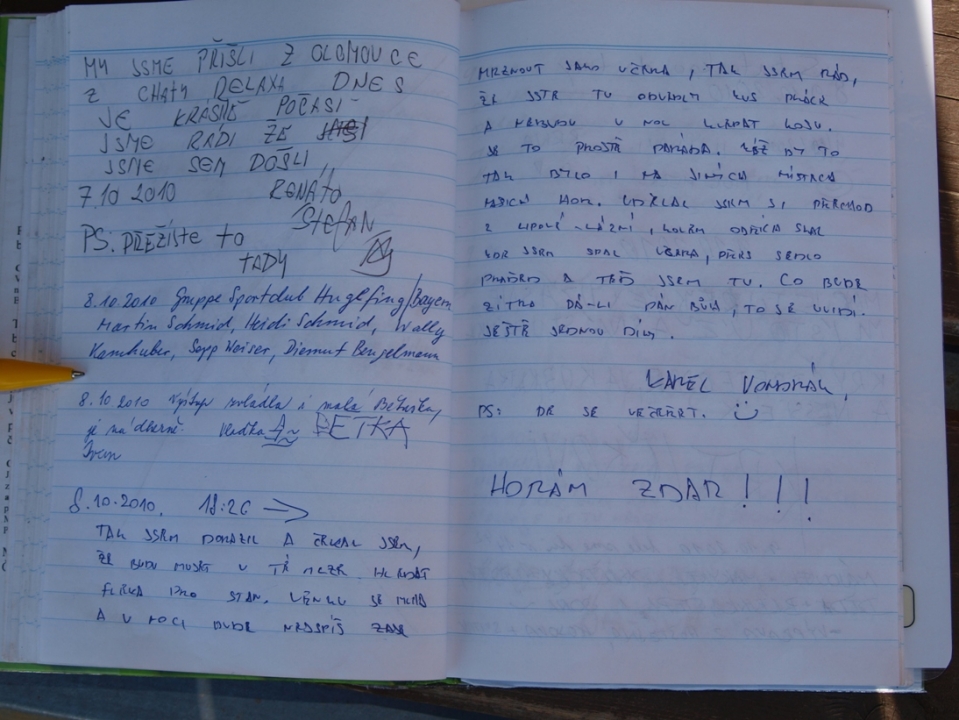 MY JSME PŘIŠLI Z OLOMOUCE
Z CHATY RELAXA DNES
JE KRÁSNÉ POČASÍ
JSME RÁDI ŽE
JSME SEM DOŠLI
7.10 2010 RENÁTO
STEFAN
PS. PŘEŽIJTE to
TADY
8.10.2010 Gruppe Sportclub Huglfing/Bayern
Martin Schmid, Heidi Schmid, Wally
Kamhuber, Sepp Weiser, Diemut Bengelmann
8.10 2010 Výstup zvládla i malá Bětuška,
je nádherně BĚTKA
8.10.2010. 18:26 →
TAK JSEM DORAZIL A ČEKAL JSEM,
ŽE BUDU MUSET V TÉ MLZE HLEDAT
FLEKA PRO STAN. VENKU SE
A V NOCI BUDE NEJSPÍŠ ZASE
MRZNOUT JAKO VČERA, TAK JSEM RÁD,
ŽE JSTE TU ODVEDLI KUS PRÁCE
A NEBUDU V NOC KLEPAT KOSU.
JE TO PROSTĚ PARÁDA. KÉŽ BY TO
TAK BYLO I NA JINÝCH MÍSTECH
NAŠICH HOR. UDĚLAL JSEM SI PŘECHOD
Z LIPOVÉ-LÁZNÍ, KOLEM OBŘÍCH SKAL
KDE JSEM SPAL VČERA, PŘES SEDLO
PRADĚD A TEĎ JSEM TU. CO BUDE
ZÍTRA DÁ-LI PÁN BŮH, TO SE UVIDÍ.
JEŠTĚ JEDNOU DÍKY.
KAREL VONDRÁK,
PS: DE SE VEČEŘET. :)
HORÁM ZDAR!!!